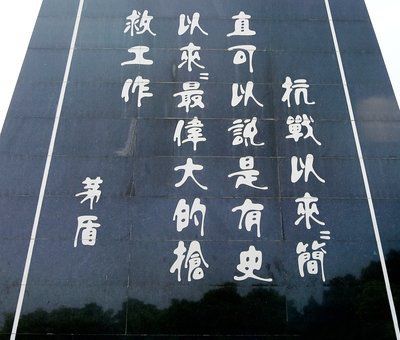 抗戰以來〃簡
直可以說是有史
以來〃最偉大的搶
救工作
茅盾